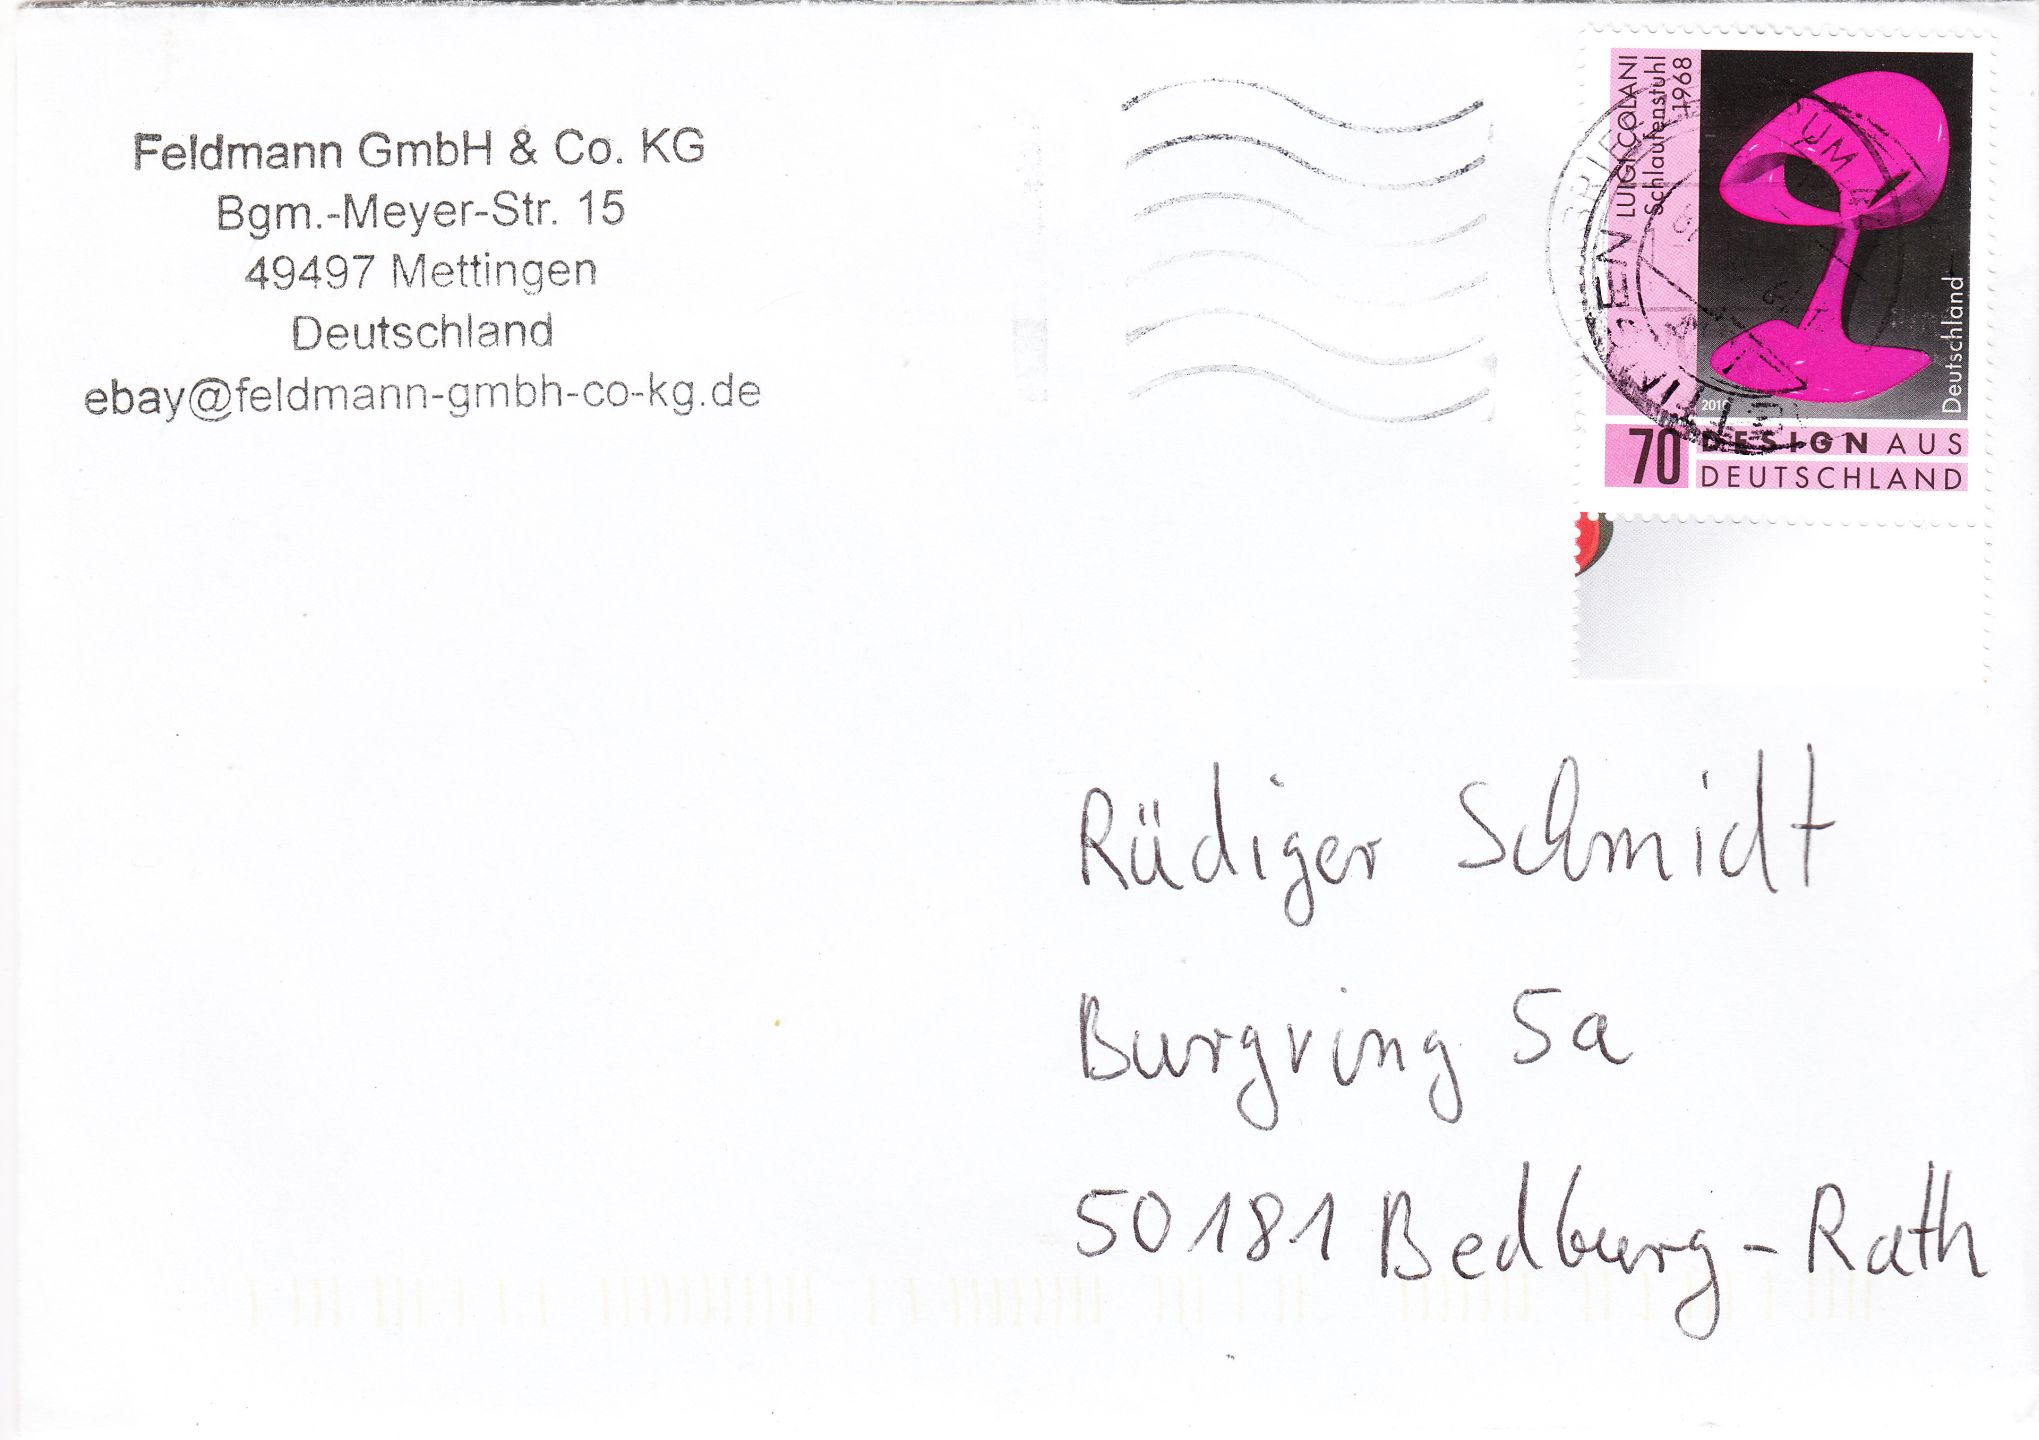 Feldmann GmbH & Co. KG
Bgm.-Meyer-Str. 15
49497 Mettingen
Deutschland
ebay@feldmann-gmbh-co-kg.de
LUIGI COLANI
Schlaufenstuhl
1968
Deutschland
70
DESIGN AUS
DEUTSCHLAND
Rüdiger Schmidt
Burgring 5a
50181 Bedburg-Rath